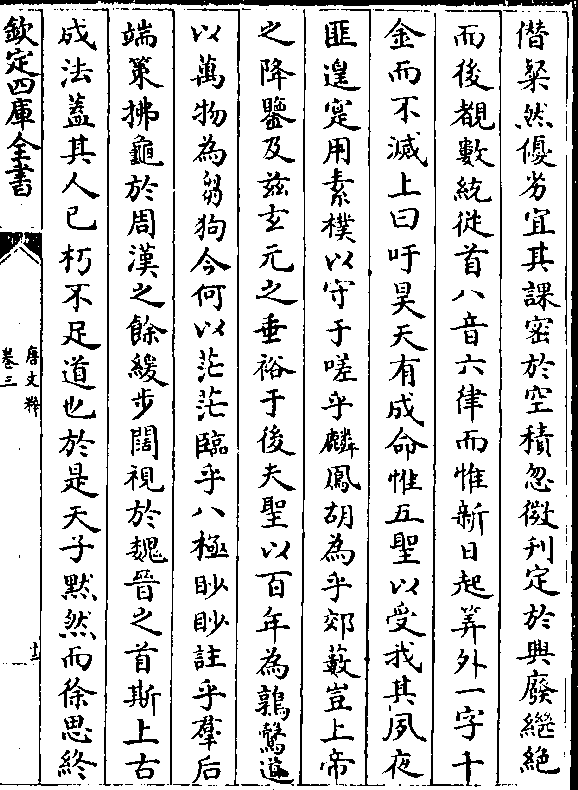 僭粲然優劣宜其課密於空積忽微刋定於興廢繼絶
而後覩數統從首八音六律而惟新日起筭外一字千
金而不滅上曰吁昊天有成命惟五聖以受我其夙夜
匪遑寔用素樸以守于嗟乎麟鳳胡為乎郊藪豈上帝
之降鑒及兹玄元之垂裕于後夫聖以百年為鶉鷇道
以萬物為芻狗今何以茫茫臨乎八極眇眇註乎羣后
端策拂龜於周漢之餘緩步闊視於魏晉之首斯上古
成法蓋其人已朽不足道也於是天子黙然而徐思終
欽定四庫全書
唐文粹
卷三